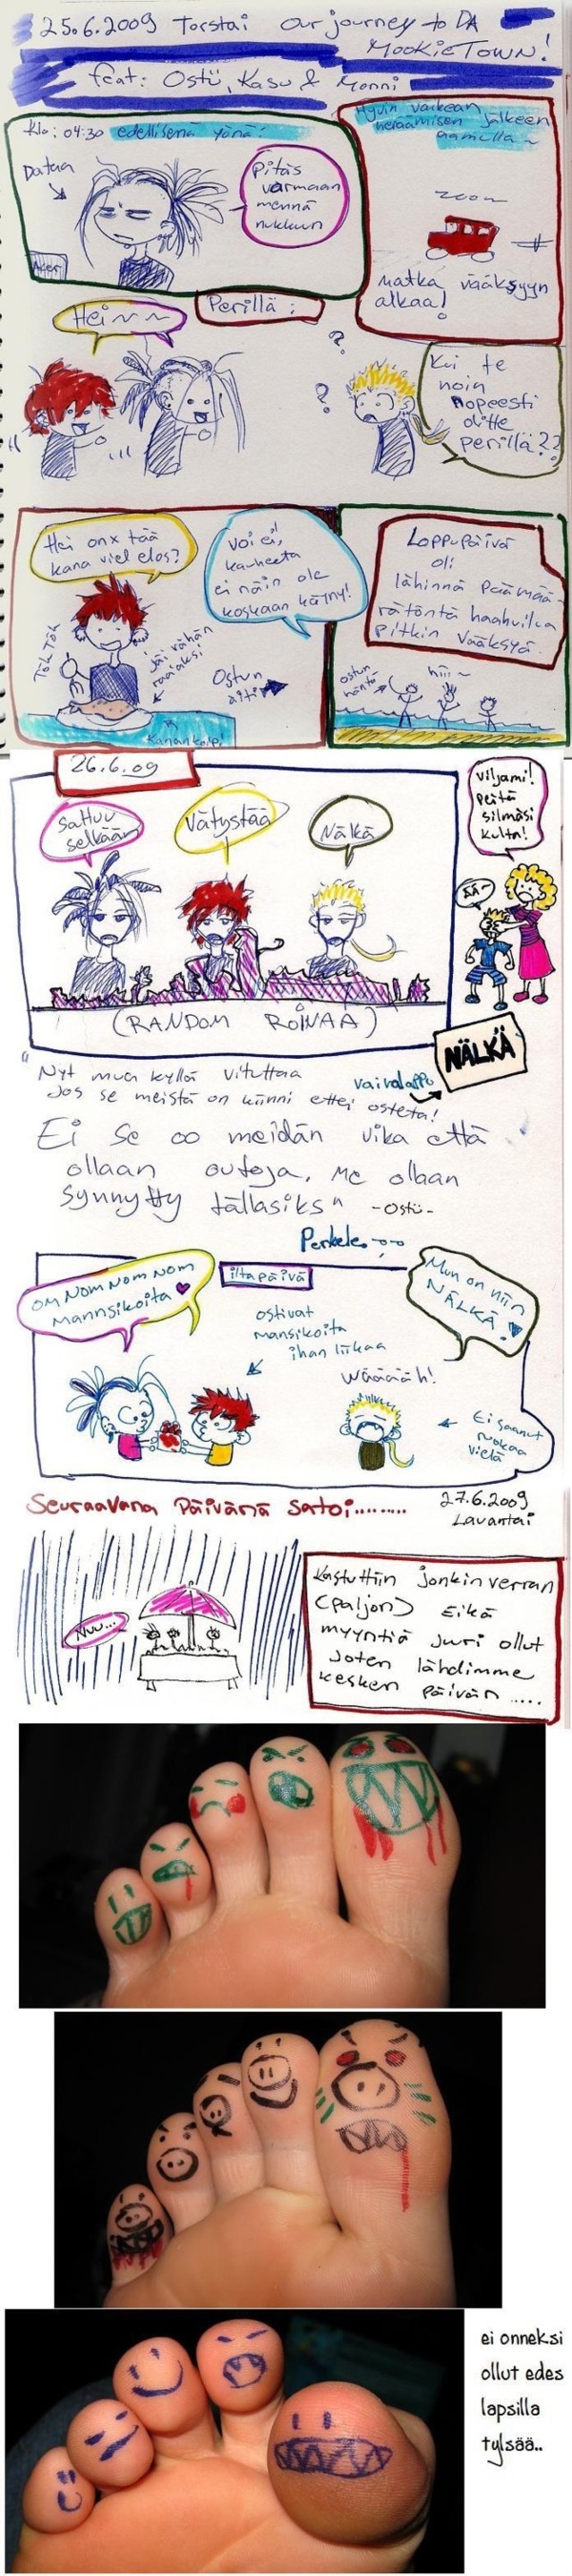 25.6.2009 Torstai our journey to DA
MOOKIETOWN!
feat: Ostü, Kasu & Monni
Klo: 04:30 edellisenä yönä:
Dataa
Pitäs
varmaan
mennä
nukkuun
Acer
Hyvin vaikean
heräämisen jälkeen
aamulla~
zoom
matka vääksyyn
alkaa!
Perillä:
Hei~~
?
?
Kui te
noin
nopeesti
olitte
perillä??
Hei onx tää
kana viel elos?
Tök Tök
jäi vähän
raaiaksi
Kanankoipi
voi ei,
kauheeta
ei näin ole
koskaan käyny!
Ostun
äiti
Loppupäivä
oli
lähinnä päämää-
rätöntä haahuilua
pitkin vääksyä.
ostun
häntä
hiii~
26.6.09
Sattuu
selkään
Vätystää
Nälkä
(RANDOM ROINAA)
Viljami!
Peitä
silmäsi
kulta!
ÄÄ~
NÄLKÄ
"Nyt mua kyllä vituttaa
Jos se meistä on kiinni ettei osteta!
vaivalappu
Ei se oo meidän vika että
ollaan outoja, me ollaan
Synnytty tällasiks" -Ostü-
Perkele
OM NOM NOM NOM
Mannsikoita ♥
iltapäivä
ostivat
mansikoita
ihan liikaa
Mun on niin
NÄLKÄ!
Wääääh!
Ei saanut
ruokaa
vielä
Seuraavana Päivänä Satoi.........
27.6.2009
Lauantai
Nuu...
Kastuttiin jonkin verran
(paljon) Eikä
myyntiä juuri ollut
Joten lähdimme
kesken päivän .....
ei onneksi
ollut edes
lapsilla
tylsää..